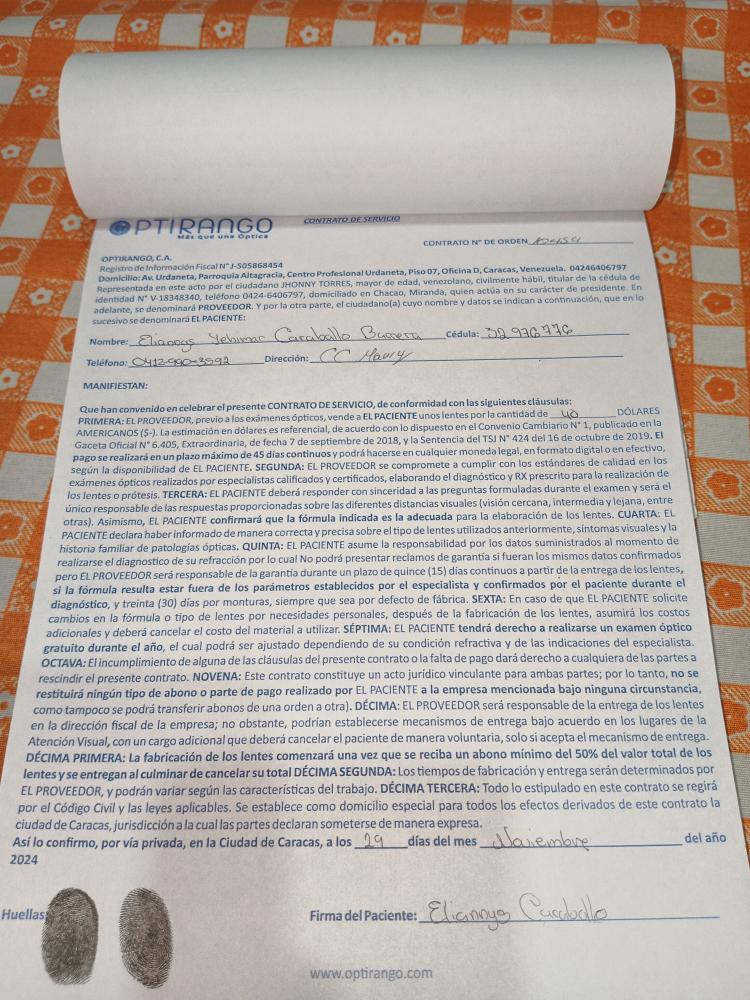 OPTIRANGO
Más que una Óptica
CONTRATO DE SERVICIO
CONTRATO N° DE ORDEN
OPTIRANGO, C.A.
Registro de Información Fiscal N° J-505868454
Domicilio: Av. Urdaneta, Parroquia Altagracia, Centro Profesional Urdaneta, Piso 07, Oficina D, Caracas, Venezuela. 04246406797
Representada en este acto por el ciudadano JHONNY TORRES, mayor de edad, venezolano, civilmente hábil, titular de la cédula de
identidad N° V-18348340, teléfono 0424-6406797, domiciliado en Chacao, Miranda, quien actúa en su carácter de presidente. En
adelante, se denominará PROVEEDOR. Y por la otra parte, el ciudadano(a) cuyo nombre y datos se indican a continuación, que en lo
sucesivo se denominará EL PACIENTE:
Nombre: Eliannys Yebimar Caraballo Cédula: 32 976 776
Teléfono: 0412-990-3592 Dirección: CC
MANIFIESTAN:
Que han convenido en celebrar el presente CONTRATO DE SERVICIO, de conformidad con las siguientes cláusulas:
PRIMERA: EL PROVEEDOR, previo a los exámenes ópticos, vende a EL PACIENTE unos lentes por la cantidad de 40 DÓLARES
AMERICANOS ($-). La estimación en dólares es referencial, de acuerdo con lo dispuesto en el Convenio Cambiario N° 1, publicado en la
Gaceta Oficial N° 6.405, Extraordinaria, de fecha 7 de septiembre de 2018, y la Sentencia del TSJ N° 424 del 16 de octubre de 2019. El
pago se realizará en un plazo máximo de 45 días continuos y podrá hacerse en cualquier moneda legal, en formato digital o en efectivo,
según la disponibilidad de EL PACIENTE. SEGUNDA: EL PROVEEDOR se compromete a cumplir con los estándares de calidad en los
exámenes ópticos realizados por especialistas calificados y certificados, elaborando el diagnóstico y RX prescrito para la realización de
los lentes o prótesis. TERCERA: EL PACIENTE deberá responder con sinceridad a las preguntas formuladas durante el examen y será el
único responsable de las respuestas proporcionadas sobre las diferentes distancias visuales (visión cercana, intermedia y lejana, entre
otras). Asimismo, EL PACIENTE confirmará que la fórmula indicada es la adecuada para la elaboración de los lentes. CUARTA: EL
PACIENTE declara haber informado de manera correcta y precisa sobre el tipo de lentes utilizados anteriormente, síntomas visuales y la
historia familiar de patologías ópticas. QUINTA: EL PACIENTE asume la responsabilidad por los datos suministrados al momento de
realizarse el diagnostico de su refracción por lo cual No podrá presentar reclamos de garantía si fueran los mismos datos confirmados
pero EL PROVEEDOR será responsable de la garantía durante un plazo de quince (15) días continuos a partir de la entrega de los lentes,
si la fórmula resulta estar fuera de los parámetros establecidos por el especialista y confirmados por el paciente durante el
diagnóstico, y treinta (30) días por monturas, siempre que sea por defecto de fábrica. SEXTA: En caso de que EL PACIENTE solicite
cambios en la fórmula o tipo de lentes por necesidades personales, después de la fabricación de los lentes, asumirá los costos
adicionales y deberá cancelar el costo del material a utilizar. SÉPTIMA: EL PACIENTE tendrá derecho a realizarse un examen óptico
gratuito durante el año, el cual podrá ser ajustado dependiendo de su condición refractiva y de las indicaciones del especialista.
OCTAVA: El incumplimiento de alguna de las cláusulas del presente contrato o la falta de pago dará derecho a cualquiera de las partes a
rescindir el presente contrato. NOVENA: Este contrato constituye un acto jurídico vinculante para ambas partes; por lo tanto, no se
restituirá ningún tipo de abono o parte de pago realizado por EL PACIENTE a la empresa mencionada bajo ninguna circunstancia,
como tampoco se podrá transferir abonos de una orden a otra). DÉCIMA: EL PROVEEDOR será responsable de la entrega de los lentes
en la dirección fiscal de la empresa; no obstante, podrían establecerse mecanismos de entrega bajo acuerdo en los lugares de la
Atención Visual, con un cargo adicional que deberá cancelar el paciente de manera voluntaria, solo si acepta el mecanismo de entrega.
DÉCIMA PRIMERA: La fabricación de los lentes comenzará una vez que se reciba un abono mínimo del 50% del valor total de los
lentes y se entregan al culminar de cancelar su total DÉCIMA SEGUNDA: Los tiempos de fabricación y entrega serán determinados por
EL PROVEEDOR, y podrán variar según las características del trabajo. DÉCIMA TERCERA: Todo lo estipulado en este contrato se regirá
por el Código Civil y las leyes aplicables. Se establece como domicilio especial para todos los efectos derivados de este contrato la
ciudad de Caracas, jurisdicción a la cual las partes declaran someterse de manera expresa.
Así lo confirmo, por vía privada, en la Ciudad de Caracas, a los 29 días del mes Noviembre del año
2024
Huellas: Firma del Paciente: Eliannys Caraballo
www.optirango.com